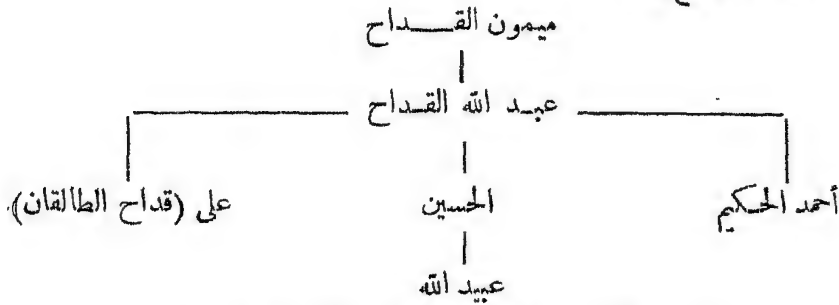 ميمون القـــداح
عبـد الله القـداح
أحمد الحكيم الحسين على (قداح الطالقان).
عبيد الله